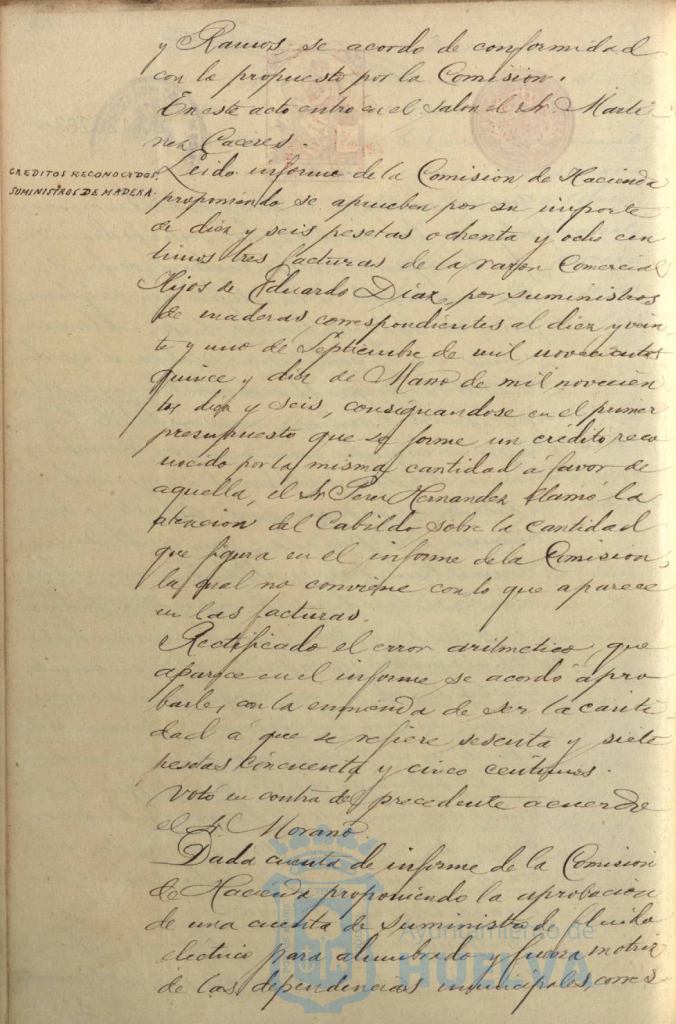 y Ramos se acordo de conformidad
con la propuesto por la Comision.
En este acto entro en el salon el Sr. Marti-
nez Caceres.
CREDITOS RECONOCIDOS.
SUMINISTROS DE MADERA.
Leido informe de la Comision de Hacienda
proponiendo se aprueben por su importe
de diez y seis pesetas ochenta y ocho cen
timos tres facturas de la razon Comercial
Hijos de Eduardo Diaz, por suministros
de maderas correspondientes al diez y vein
te y uno de Septiembre de mil novecientos
quince y diez de Marzo de mil novecien
tos diez y seis, consignandose en el primer
presupuesto que se forme un crédito reco
nocido por la misma cantidad á favor de
aquella, el Sr Perez Hernandez llamó la
atencion del Cabildo sobre la cantidad
que figura en el informe de la Comision,
la qual no conviene con lo que aparece
en las facturas.
Rectificado el error aritmetico que
aparece en el informe se acordó apro
barle, con la enmienda de ser la canti-
dad á que se refiere sesenta y siete
pesetas cincuenta y cinco centimos.
Votó en contra del precedente acuerdo
el Sr. Morano.
Dada cuenta de informe de la Comision
de Hacienda proponiendo la aprobacion
de una cuenta de suministro de fluido
eléctrico para alumbrado y fuerza motriz
de las dependencias municipales, corres
Ayuntamiento de
HUELVA